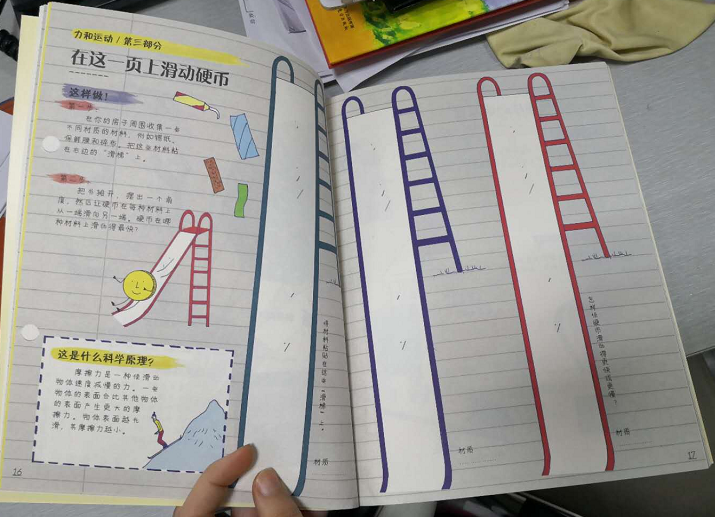 力和运动/第三部分
在这一页上滑动硬币
这样做!
第一步
在你的房子周围收集一些
不同材质的材料，例如锡纸、
保鲜膜和碎布。把这些材料粘
在右边的“滑梯”上。
第二步
把书掀开，摆出一个角
度，然后让硬币在每种材料上
从一端滑向另一端。硬币在哪
种材料上滑住得最快?
这是什么科学原理?
摩擦力是一种使滑动
物体速度减慢的力。一些
物体的表面会比其他物体
的表面产生更大的摩
擦力。物体表面越光
滑，其摩擦力越小。
16
将材料粘贴在这些“滑梯”上。
材质
材质
怎样使硬币滑得更快或更慢?
17